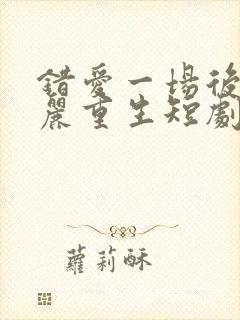 錯愛一場後
麗重生短劇
蘿莉酥